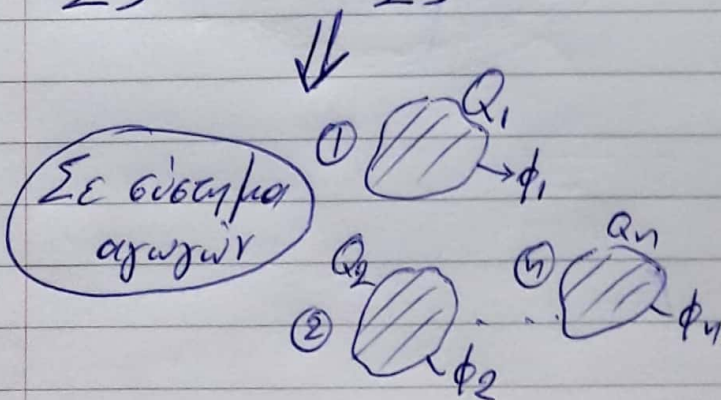 ⇓
Σε σύστημα
αγωγών
① Q₁
φ₁
Q₂
② φ₂
. . .
Qₙ
ⓝ φₙ